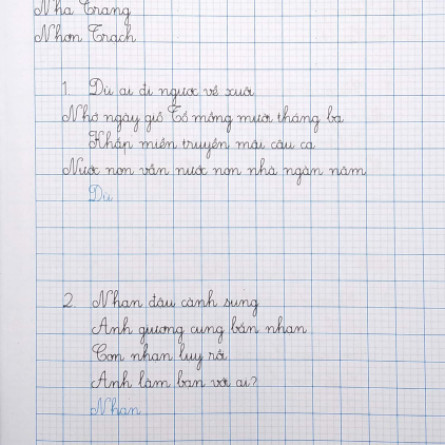 Nha Trang
Nhơn Trạch
1. Dù ai đi ngược về xuôi
Nhớ ngày giỗ Tổ mồng mười tháng ba
Khắp miền truyền mãi câu ca
Nước non vẫn nước non nhà ngàn năm
Dù
2. Nhạn đậu cành sung
Anh giương cung bắn nhạn
Con nhạn luỵ rồi
Anh làm bạn với ai?
Nhạn